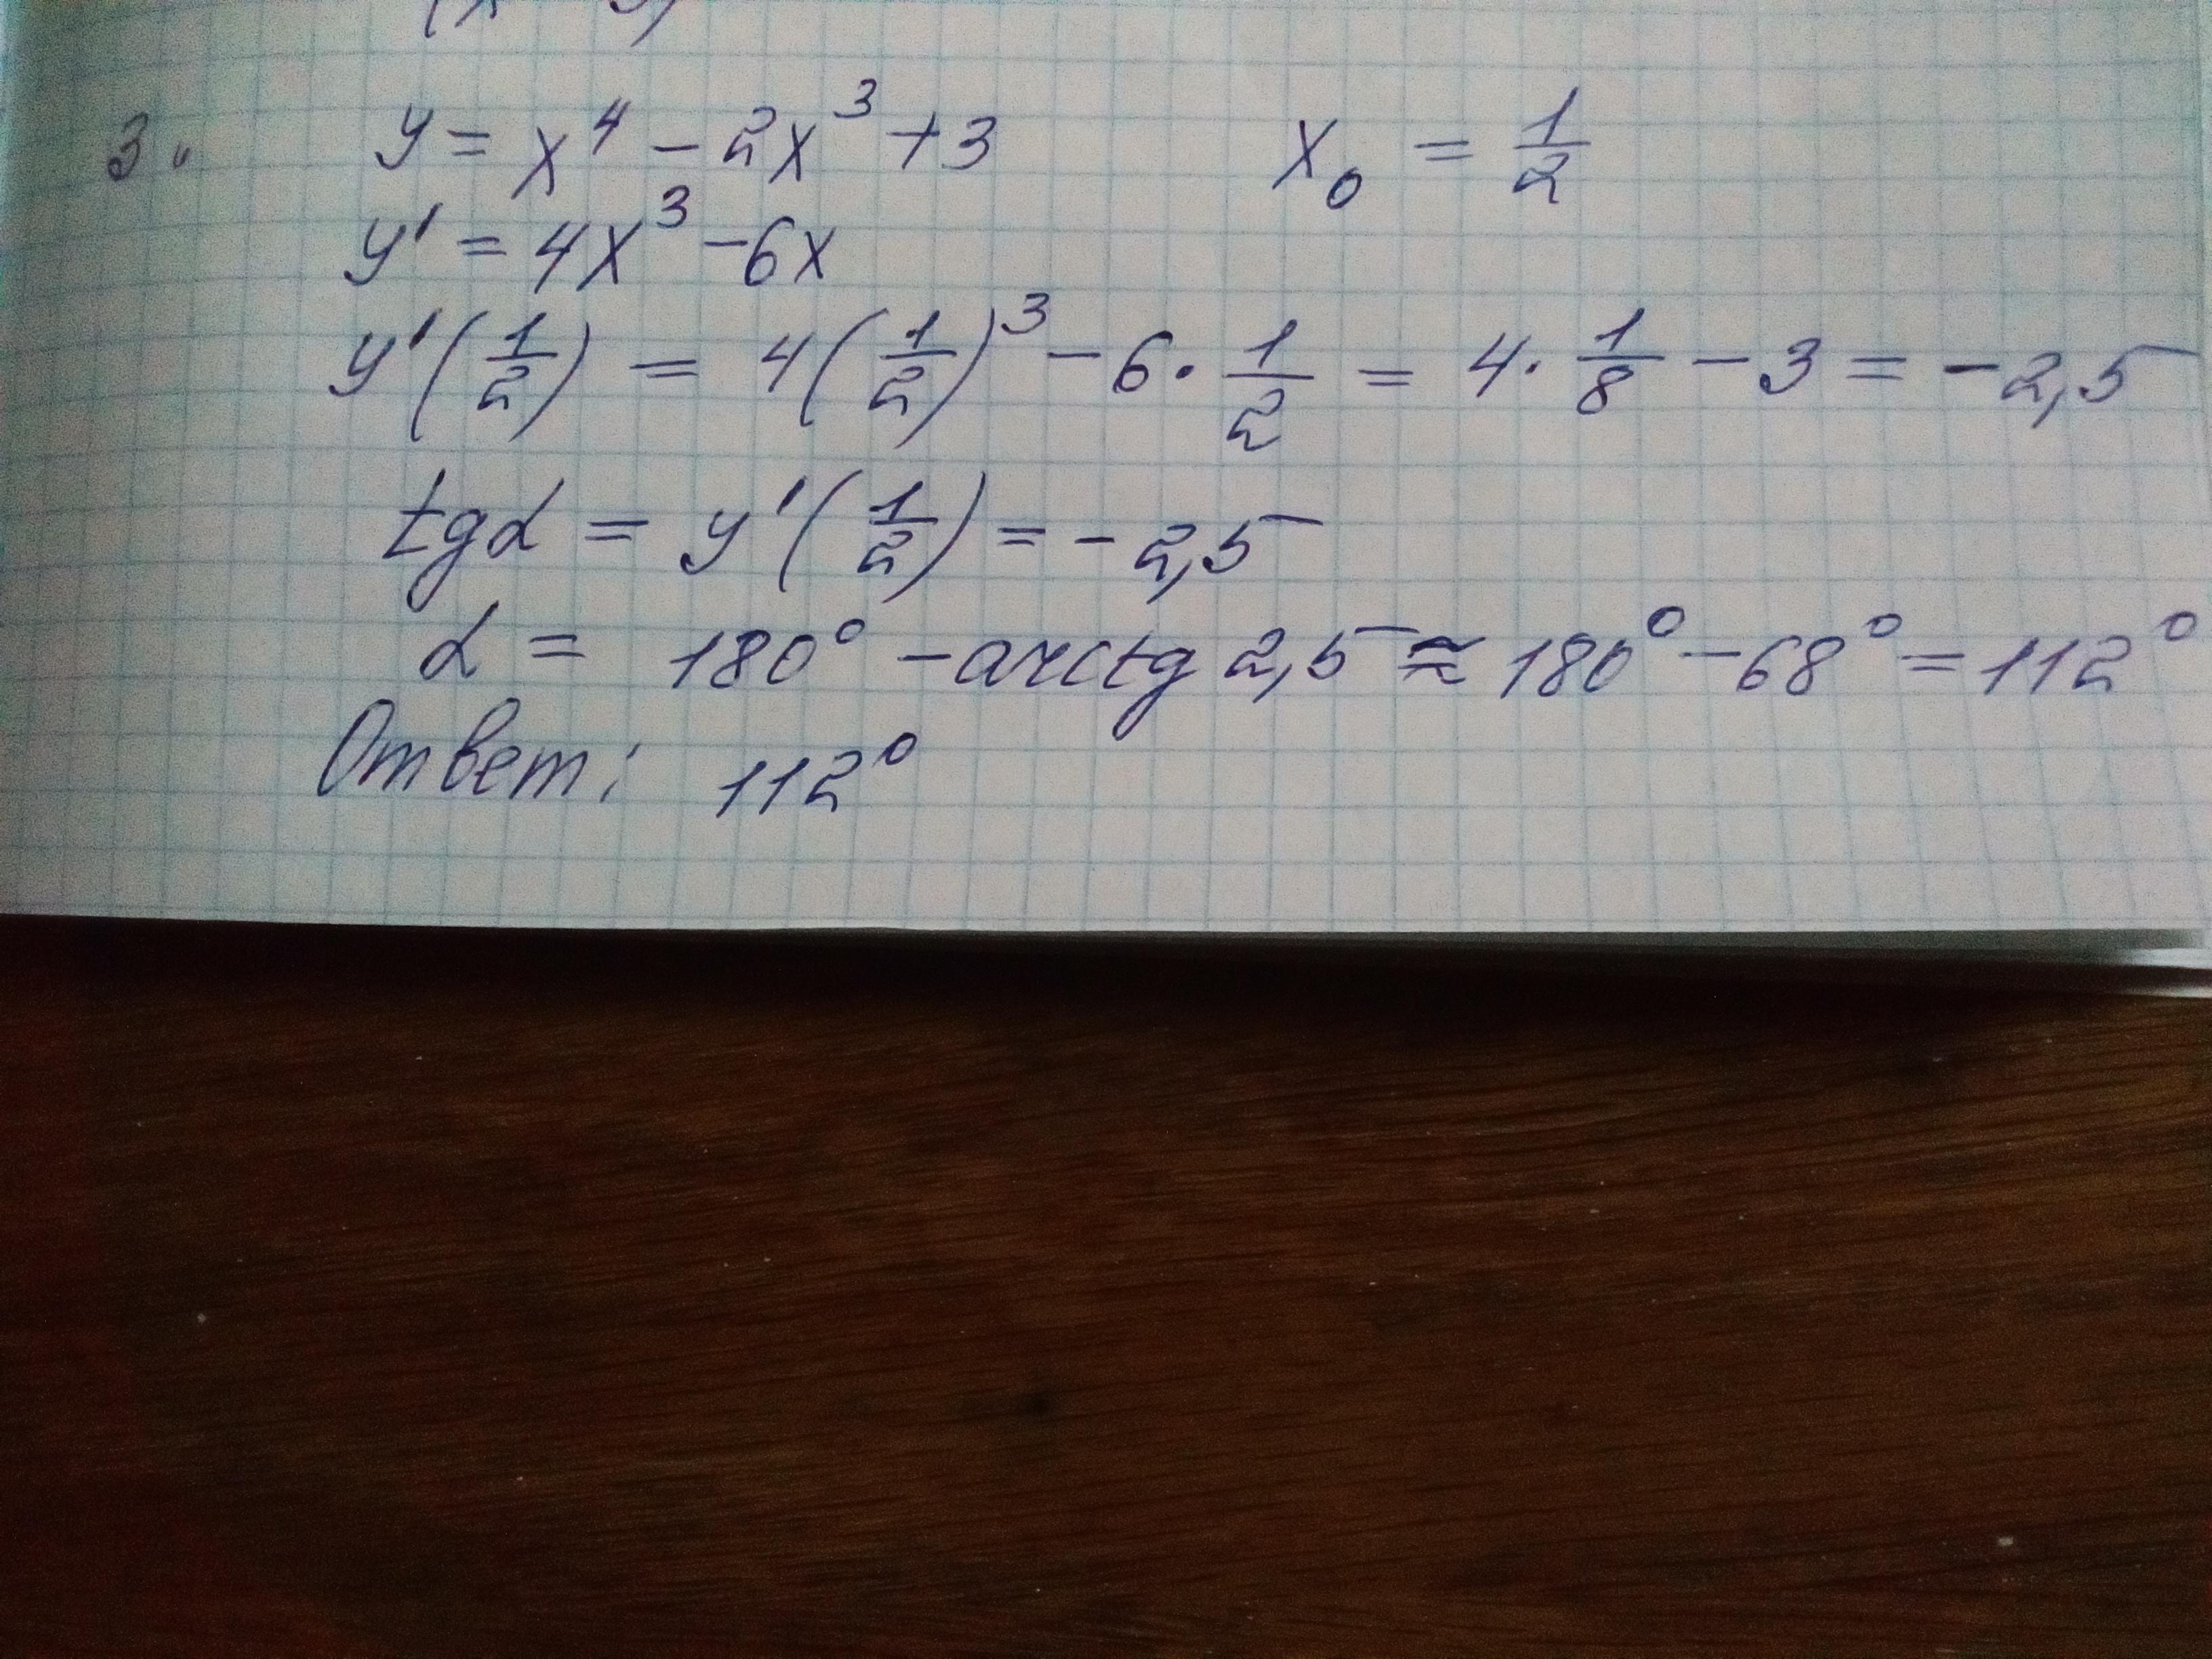 3. y = x⁴ - 2x³ + 3 x₀ = 1/2
y' = 4x³ - 6x
y'(1/2) = 4(1/2)³ - 6 · 1/2 = 4 · 1/8 - 3 = -2,5
tgα = y'(1/2) = -2,5
α = 180° - arctg 2,5 ≈ 180° - 68° = 112°
Ответ: 112°